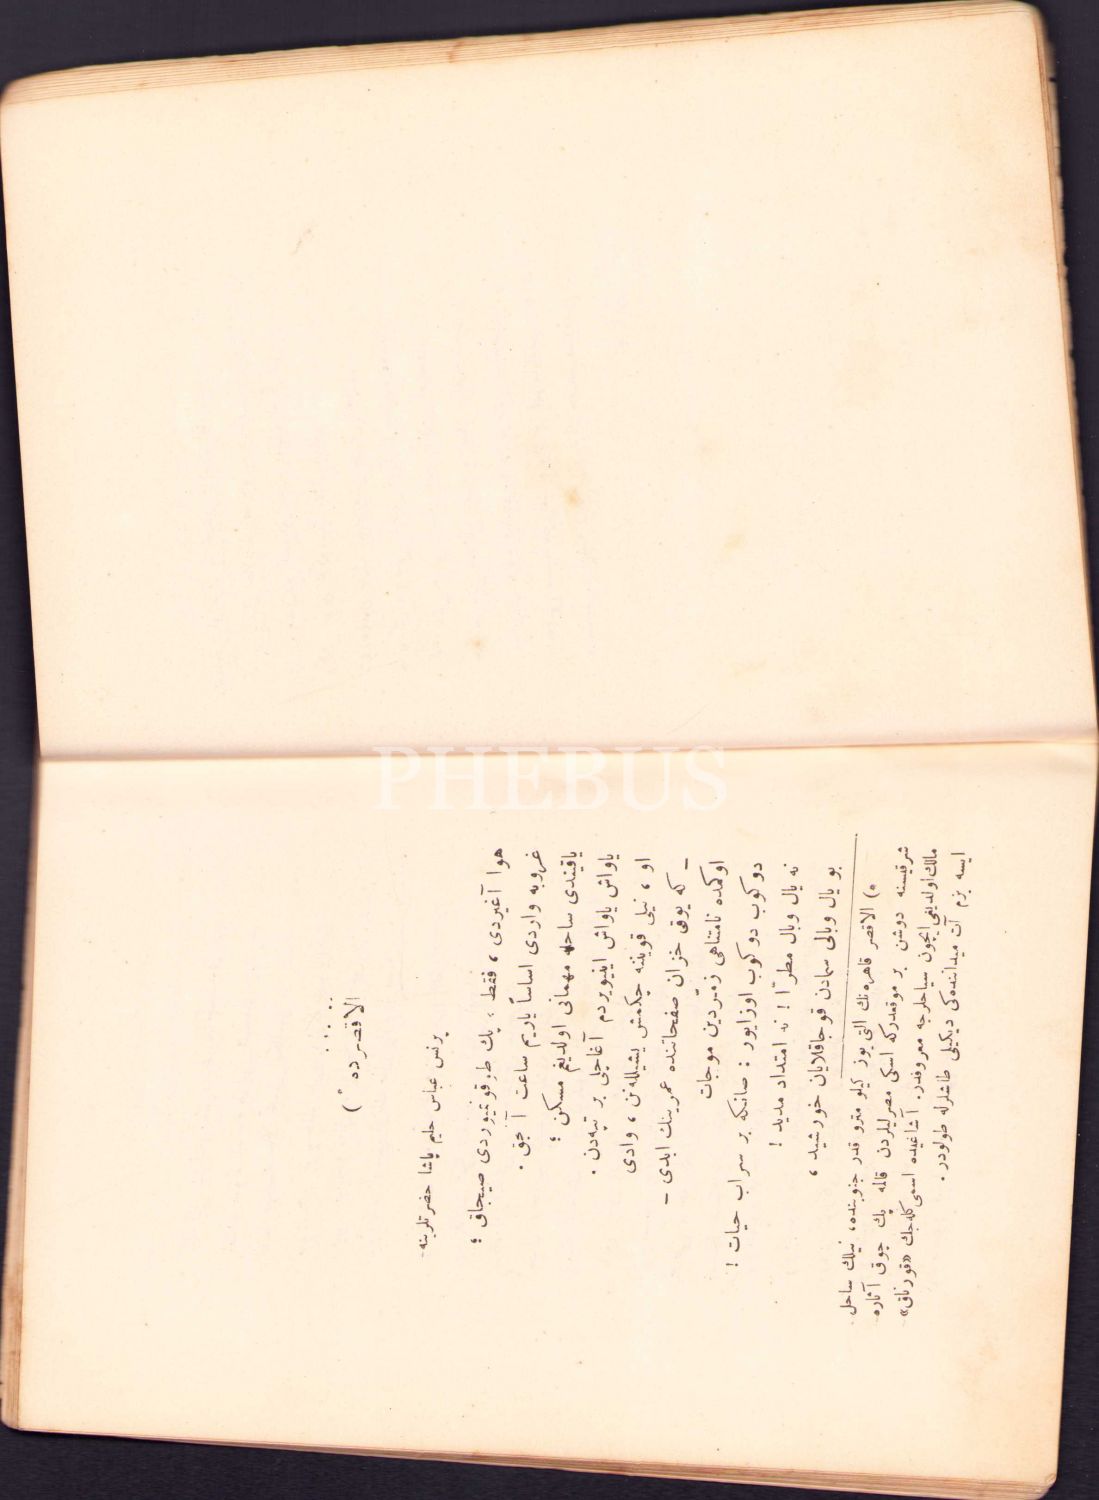 الاقصرده *)
پرنس عباس حليم پاشا حضرتلرينه
هوا آغيردى ، فقط ، پك طوقونميوردى صيجاق ؛
غروبه واردى اساساً ياريم ساعت آنجق .
ياقيندى ساحله مهمانى اولديغم مسكن ؛
ياواش ياواش اينيويردم آغاجلى بر تپه‌دن .
او ، نيلى قويننه چكمش يشيللەنن ، وادى
- كه يوقدى خزان صفحاتنده عمرينك ابدى -
اوكمده نامتناهى زمرّدين موجات
دوكوب دوكوب اوزايور : صانكه بر سراب حيات !
نه يال وبال مطرّا ! نه امتداد مديد !
بو يال وبالى سمادن قوجاقلايان خورشيد ،
*) الاقصر قاهره‌نك التى يوز كيلو مترو قدر جنوبنده ، نيلك ساحل
شرقيسنه دوشن بر موقعدركه اسكى مصرليلردن قالمه پك چوق آثاره
مالك اولديغى ايچون سياحلرجه معروفدر. آشاغيده اسمى كله‌جك «قورناق»
ايسه بزم آت ميداننده‌كى ديكيلى طاشلرله طولودر.
PHEBUS